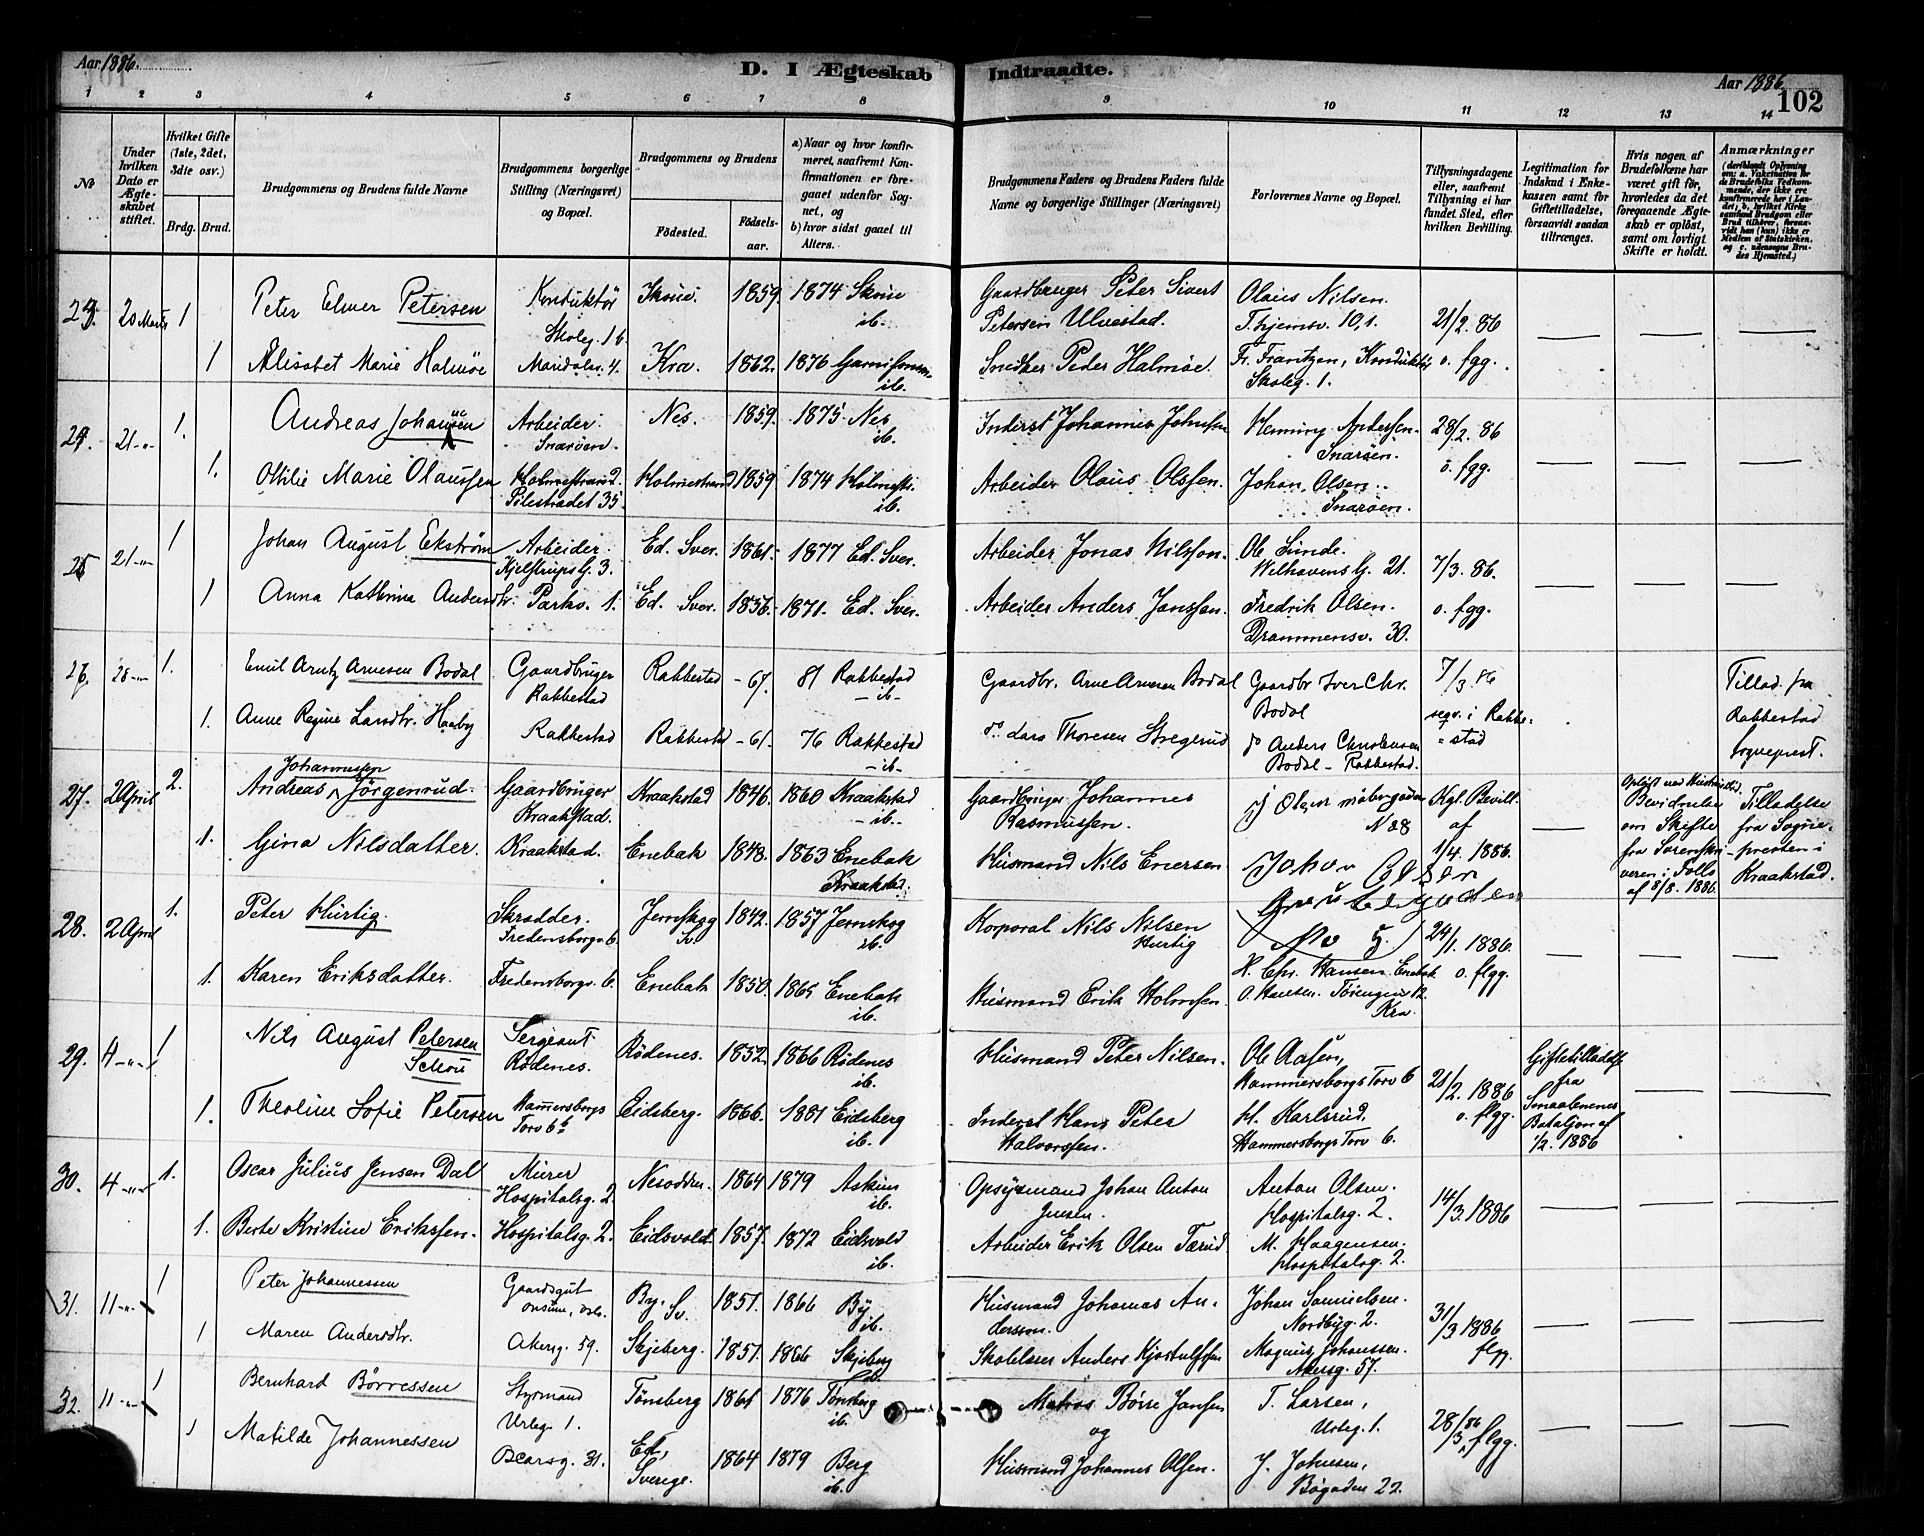 Aar 1886.
D. I Ægteskab Indtraadte.
Aar 1886.
102
1 2 3 4 5 6 7 8 9 10 11 12 13 14
No
Under hvilken Dato er Ægteskabet stiftet.
Hvilket Gifte (1ste, 2det, 3die osv.)
Brdg. Brud.
Brudgommens og Brudens fulde Navne
Brudgommens borgerlige Stilling (Næringsvei) og Bopæl.
Brudgommens og Brudens
Födested.
Födselsaar.
a) Naar og hvor konfirmeret, saafremt Konfirmationen er foregaaet udenfor Sognet, og
b) hvor sidst gaaet til Alters.
Brudgommens Faders og Brudens Faders fulde Navne og borgerlige Stillinger (Næringsvei)
Forlovernes Navne og Bopæl.
Tillysningsdagene eller, saafremt Tillysning ei har fundet Sted, efter hvilken Bevilling.
Legitimation for Indskud i Enkekassen samt for Giftetilladelse, forsaavidt saadan tiltrænges.
Hvis nogen af Brudefolkene har været gift för, hvorledes da det foregaaende Ægteskab er oplöst, samt om lovligt Skifte er holdt.
Anmærkninger
(deriblandt Oplysning om: a. Vaccination for de Brudefolks Vedkommende, der ikke ere konfirmerede her i Landet; b. hvilket Kirkesamfund Brudgom eller Brud tilhörer, forsaavidt han (hun) ikke er Medlem af Statskirken, og c. udensogns Brudes Hjemsted.)
20 Marts 1 Peter Elmer Petersen Konduktör 1859. 1874 Gaardbruger Peter Sivert Olaus Nilsen.
Skoleg. 16. ib. Petersen Ulvestad. T.hjemsv. 10,1. 21/2. 86
1 Elisabet Marie Halmöe Maridalsv. 4. Kra. 1862. 1876 Garnisonsm. Snedker Peder Halmöe. Fr. Frantzen, Konduktör o. fgg.
ib. Skoleg. 1.
21-"- 1. Andreas Johansen Arbeider. Nes. 1859. 1875 Nes Inderst Johannes Johnsen Henning Andersen. 28/2. 86
Snaröen. ib. Snaröen. o. fgg.
1. Othilie Marie Olaussen Holmestrand. Holmestrand 1859 1874 Holmestr. Arbeider Olaus Olssen. Johan Olsen.
Pilestrædet 35. ib. Snaröen.
21-"- 1 Johan August Ekström Arbeider. Ed. Sver. 1861. 1877 Ed. Sver. Arbeider Jonas Nilsson. Ob Lunde.
Kjelstrups G. 3. Welhavens G. 21. 7/3. 86.
1 Anna Kathrina Andersdtr. Parkv. 1. Ed. Sver. 1856. 1871. Ed. Sver. Arbeider Anders Jansson. Fredrik Olsen. o. fgg.
Drammensv. 30.
1. Emil Arntz Arnesen Bodal Gaardbruger Rakkestad -67. 81 Rakkestad Gaardbr. Arne Arnesen Bodal Gaardbr Iver Chr. 7/3. 86 Tillad. fra
Rakkestad -ib- Bodal segv. i Rakkestad Rakkestad
1. Anne Regine Larsdtr. Haaby Rakkestad Rakkestad -61. 76 Rakkestad do Lars Thoresen Stregerud do Anders Christensen Sogneprest.
-ib- Bodal - Rakkestad.
27. 2 April 2. Andreas Johannessen Jörgenrud. Gaardbruger Kraakstad 1846. 1860 Kraakstad Gaardbruger Johannes J Olsen Kgl. Bevill. Tilladelse
Kraakstad. -ib- Rasmussen. N 28 af Bevidnelse om Skifte fra Sogne-
1. Gina Nilsdatter. Kraakstad. Enebak 1848. 1863 Enebak Husmand Nils Enersen Johan Olsen 1/4. 1886. fra Sorenskriveren i Follo presten i
Kraakstad. af 8/8. 1886. Kraakstad.
28. 2 April 1. Peter Hurtig. Skrædder. Jernskog 1842. 1857 Jernskog Korporal Nils Nilsen No 5. 24/1. 1886.
Fredensborgv. 6. Sv. ib. Hurtig
1. Karen Eriksdatter. Fredensborgv. 6. Enebak 1850. 1865 Enebak Husmand Erik Holmsen. H. Chr. Hansen. Enebak o. flgg.
ib. O. Hansen. Töiengen 12. Kra.
29. 4-"- 1 Nils August Petersen Sergeant Rödenes. 1852. 1866 Rödenes Husmand Peter Nilsen. Ole Aasen, Giftetilladelse
Schou Rödenes. ib. Hammersborgs Torv 6 21/2. 1886 fra
1. Theoline Sofie Petersen Hammersborgs Eidsberg. 1866. 1881 Eidsberg Inderst Hans Peter H. Karlsrud, o. flgg. Smaalenenes
Torv 6b ib. Halvorssen. Hammersborgs Torv 6. Bataljon af 1/2. 1886
30. 4-"- 1. Oscar Julius Jensen Dal Murer Nesodden. 1864 1879 Askim Opsynsmand Johan Anton Anton Olsen. 14/3. 1886
Hospitalsg. 2. ib. Jensen. Hospitalsg. 2.
1. Berte Kristine Erikssen. Hospitalsg. 2. Eidsvold. 1857. 1872 Eidsvold Arbeider Erik Olsen Tærud M. Haagensen.
ib. Hospitalsg. 2.
31. 11-"- 1 Peter Johannessen Gaardsgut By. Sv. 1851. 1866 By Husmand Johannes An- Johan Samuelsen. 31/3 1886
ib. dersson. Nordbyg. 2.
1 Maren Andersdtr. Akersg. 59. Skjeberg. 1851. 1866 Skjeberg Skolelærer Anders Kjostulfssen Magnus Johanssen. flgg.
ib. Akersg. 57.
32. 11-"- 1 Bernhard Börressen Styrmand Tönsberg 1861 1876 Tönsberg Matros Börre Jansen T. Larsen, 28/3 86
Urteg. 1. ib. og Urteg. 1. flgg.
1 Matilde Johannessen 31. Ed, 1864 1879 Berg Husmand Johannes Olsen. J. Johnsen,
Sverige. ib. Bögaden 22.